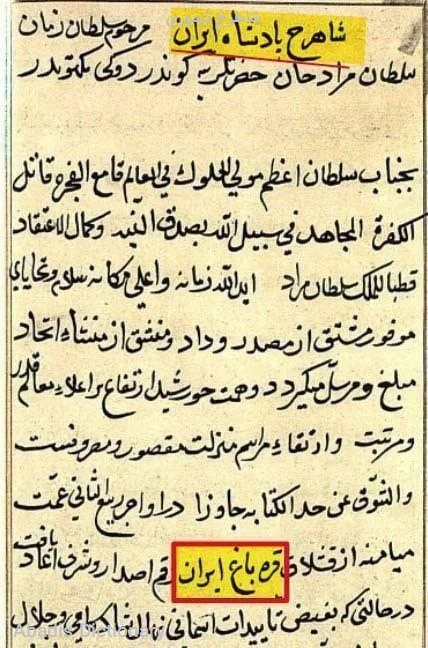 شاهرخ پادشاه ایران مرحوم سلطان زمان
سلطان مراد خان حضرتلرینه کوندردوکی مکتوبدر
بجناب سلطان اعظم مولی الملوک فی العالم قامع الفجره قاتل
الکفرة المجاهد فی سبیل الله بصدق النیه وکمال الاعتقاد
قطبا للملک سلطان مراد اید الله زمانه واعلی مکانه سلام وتحایای
موفور مشتق از مصدر وداد ومنشق از منشاء اتحاد
مبلغ ومرسل میکردد وهمت خورشید ارتفاع بر اعلاء معالم قدر
ومرتبت وارتقاء مراسم منزلت مقصور ومعروفست
والتشوق عن حد الکتابه جاوزا در اواخر ربیع الثانی عمت
میامنه از قشلاق قره باغ ایران رقم اصدار وشرف انفاذ یافت
در حالتی که بفیض تاییدات آسمانی وجلال
Abadis Dictionary